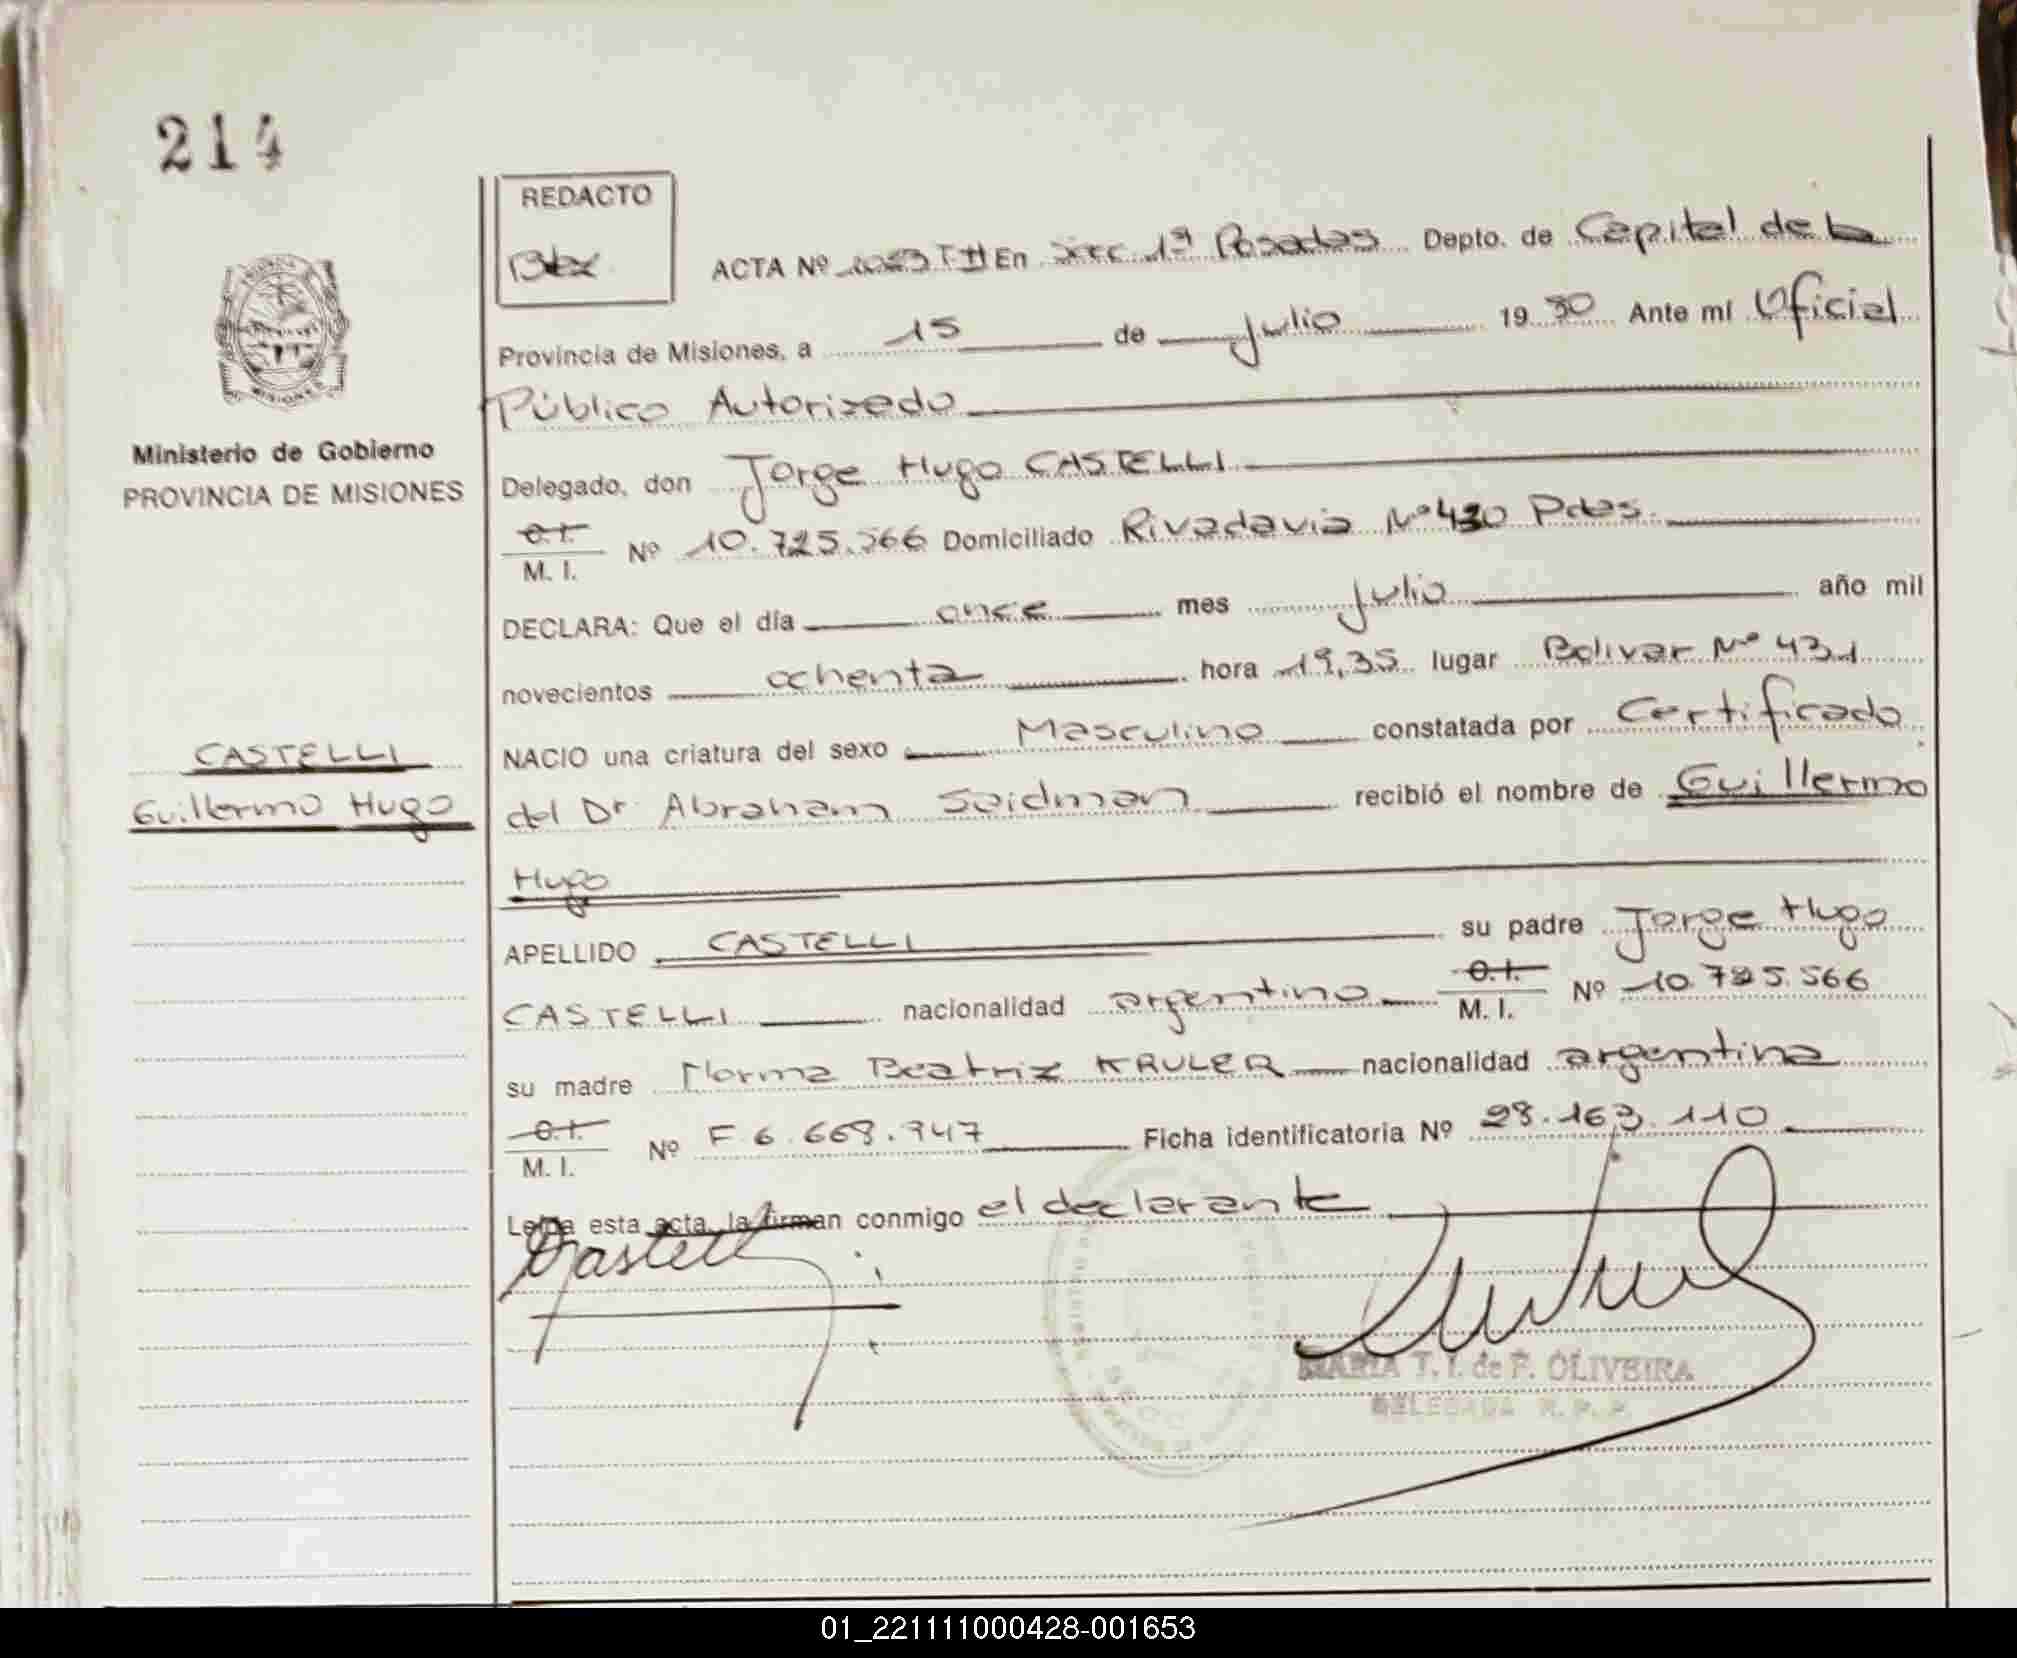 214
REDACTO
ACTA Nº T II En Secc 1ª Posadas Depto. de Capital de la
Provincia de Misiones, a 15 de Julio 19 80 Ante mí Oficial
Público Autorizado
Ministerio de Gobierno
PROVINCIA DE MISIONES
Delegado, don Jorge Hugo CASTELLI
C.I.
M. I. Nº 10.725.566 Domiciliado Rivadavia Nº 430 Pdas.
DECLARA: Que el día once mes Julio año mil
novecientos ochenta hora 19,35 lugar Bolivar Nº 431
NACIO una criatura del sexo Masculino constatada por Certificado
CASTELLI
Guillermo Hugo
del Dr. Abraham Seidman recibió el nombre de Guillermo
Hugo
APELLIDO CASTELLI su padre Jorge Hugo
CASTELLI nacionalidad argentino C.I.
M. I. Nº 10.725.566
su madre Norma Beatriz KRULER nacionalidad argentina
C.I.
M. I. Nº F 6.668.947 Ficha identificatoria Nº 28.163.110
Leída esta acta, la firman conmigo el declarante
Castelli
MARIA T. I. de F. OLIVEIRA
DELEGADA R. P. P.
01_221111000428-001653